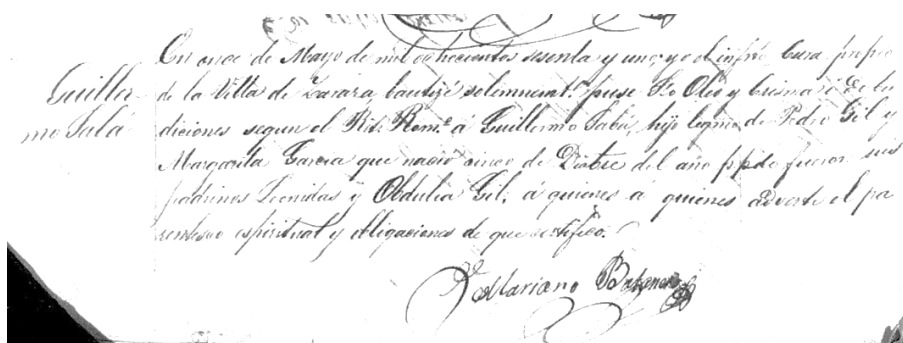 Guiller-
mo Sabá
En once de Mayo de mil ochocientos sesenta y uno, yo el infro Cura propio
de la Villa de bauticé solemnemte puse Sto Oleo y Crisma
diciones segun el Rit. Romo á Guillermo Sabá, hijo legmo de Pedro Gil y
Margarita Garcia que nació cinco de Dizbre del año ppdo fueron sus
padrinos Leonidas y Obdulia Gil, á quienes á quienes adverti el pa
rentesco espiritual y obligaciones de que certifico.
Mariano